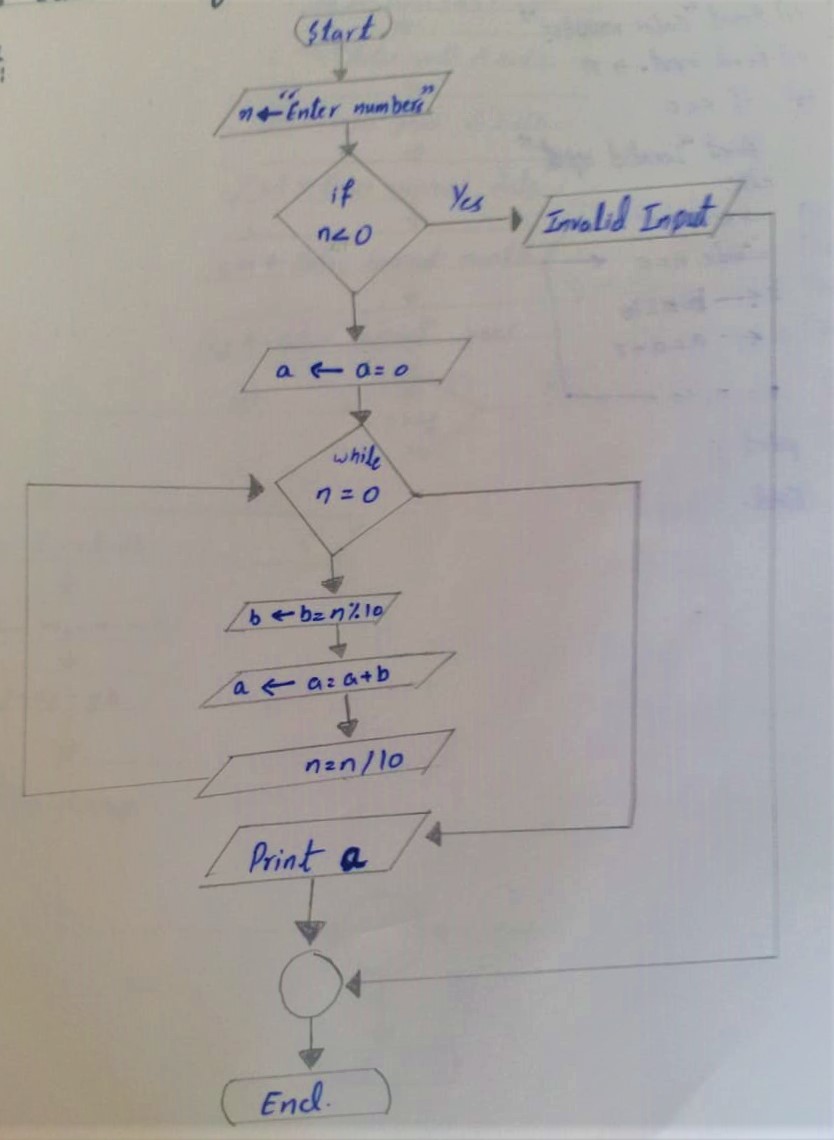 Start
n ← "Enter numbers"
if
n<0
Yes
Invalid Input
a ← a=0
while
n=0
b ← b=n%10
a ← a=a+b
n=n/10
Print a
End.